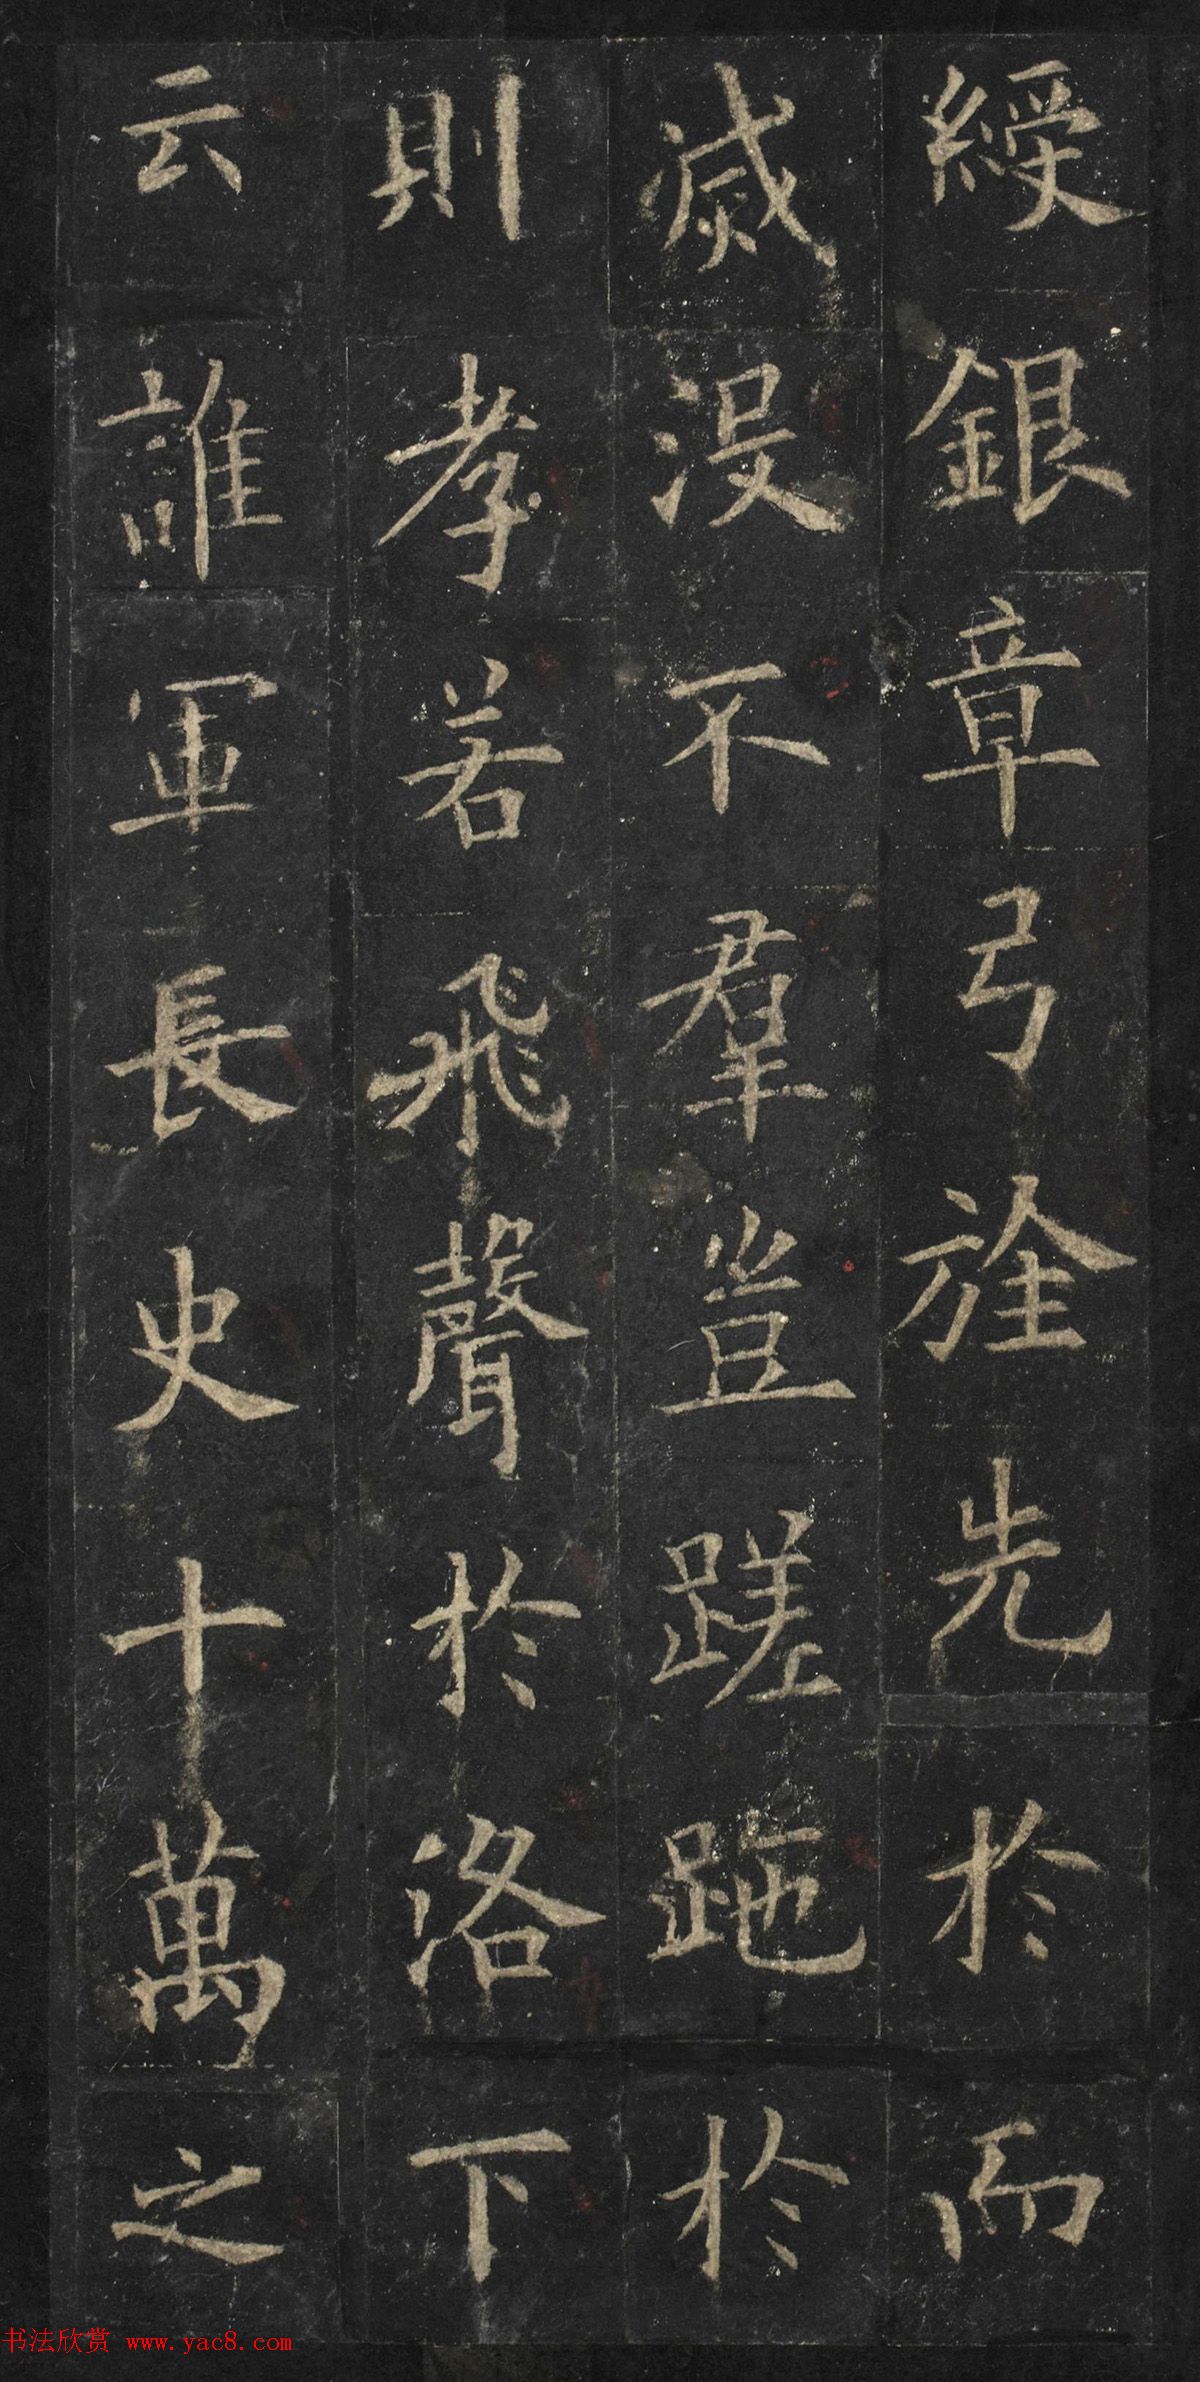 綬銀章弓旌先於而
滅沒不羣豈蹉跎於
則孝若飛聲於洛下
云誰軍長史十萬之
书法欣赏 www.yac8.com